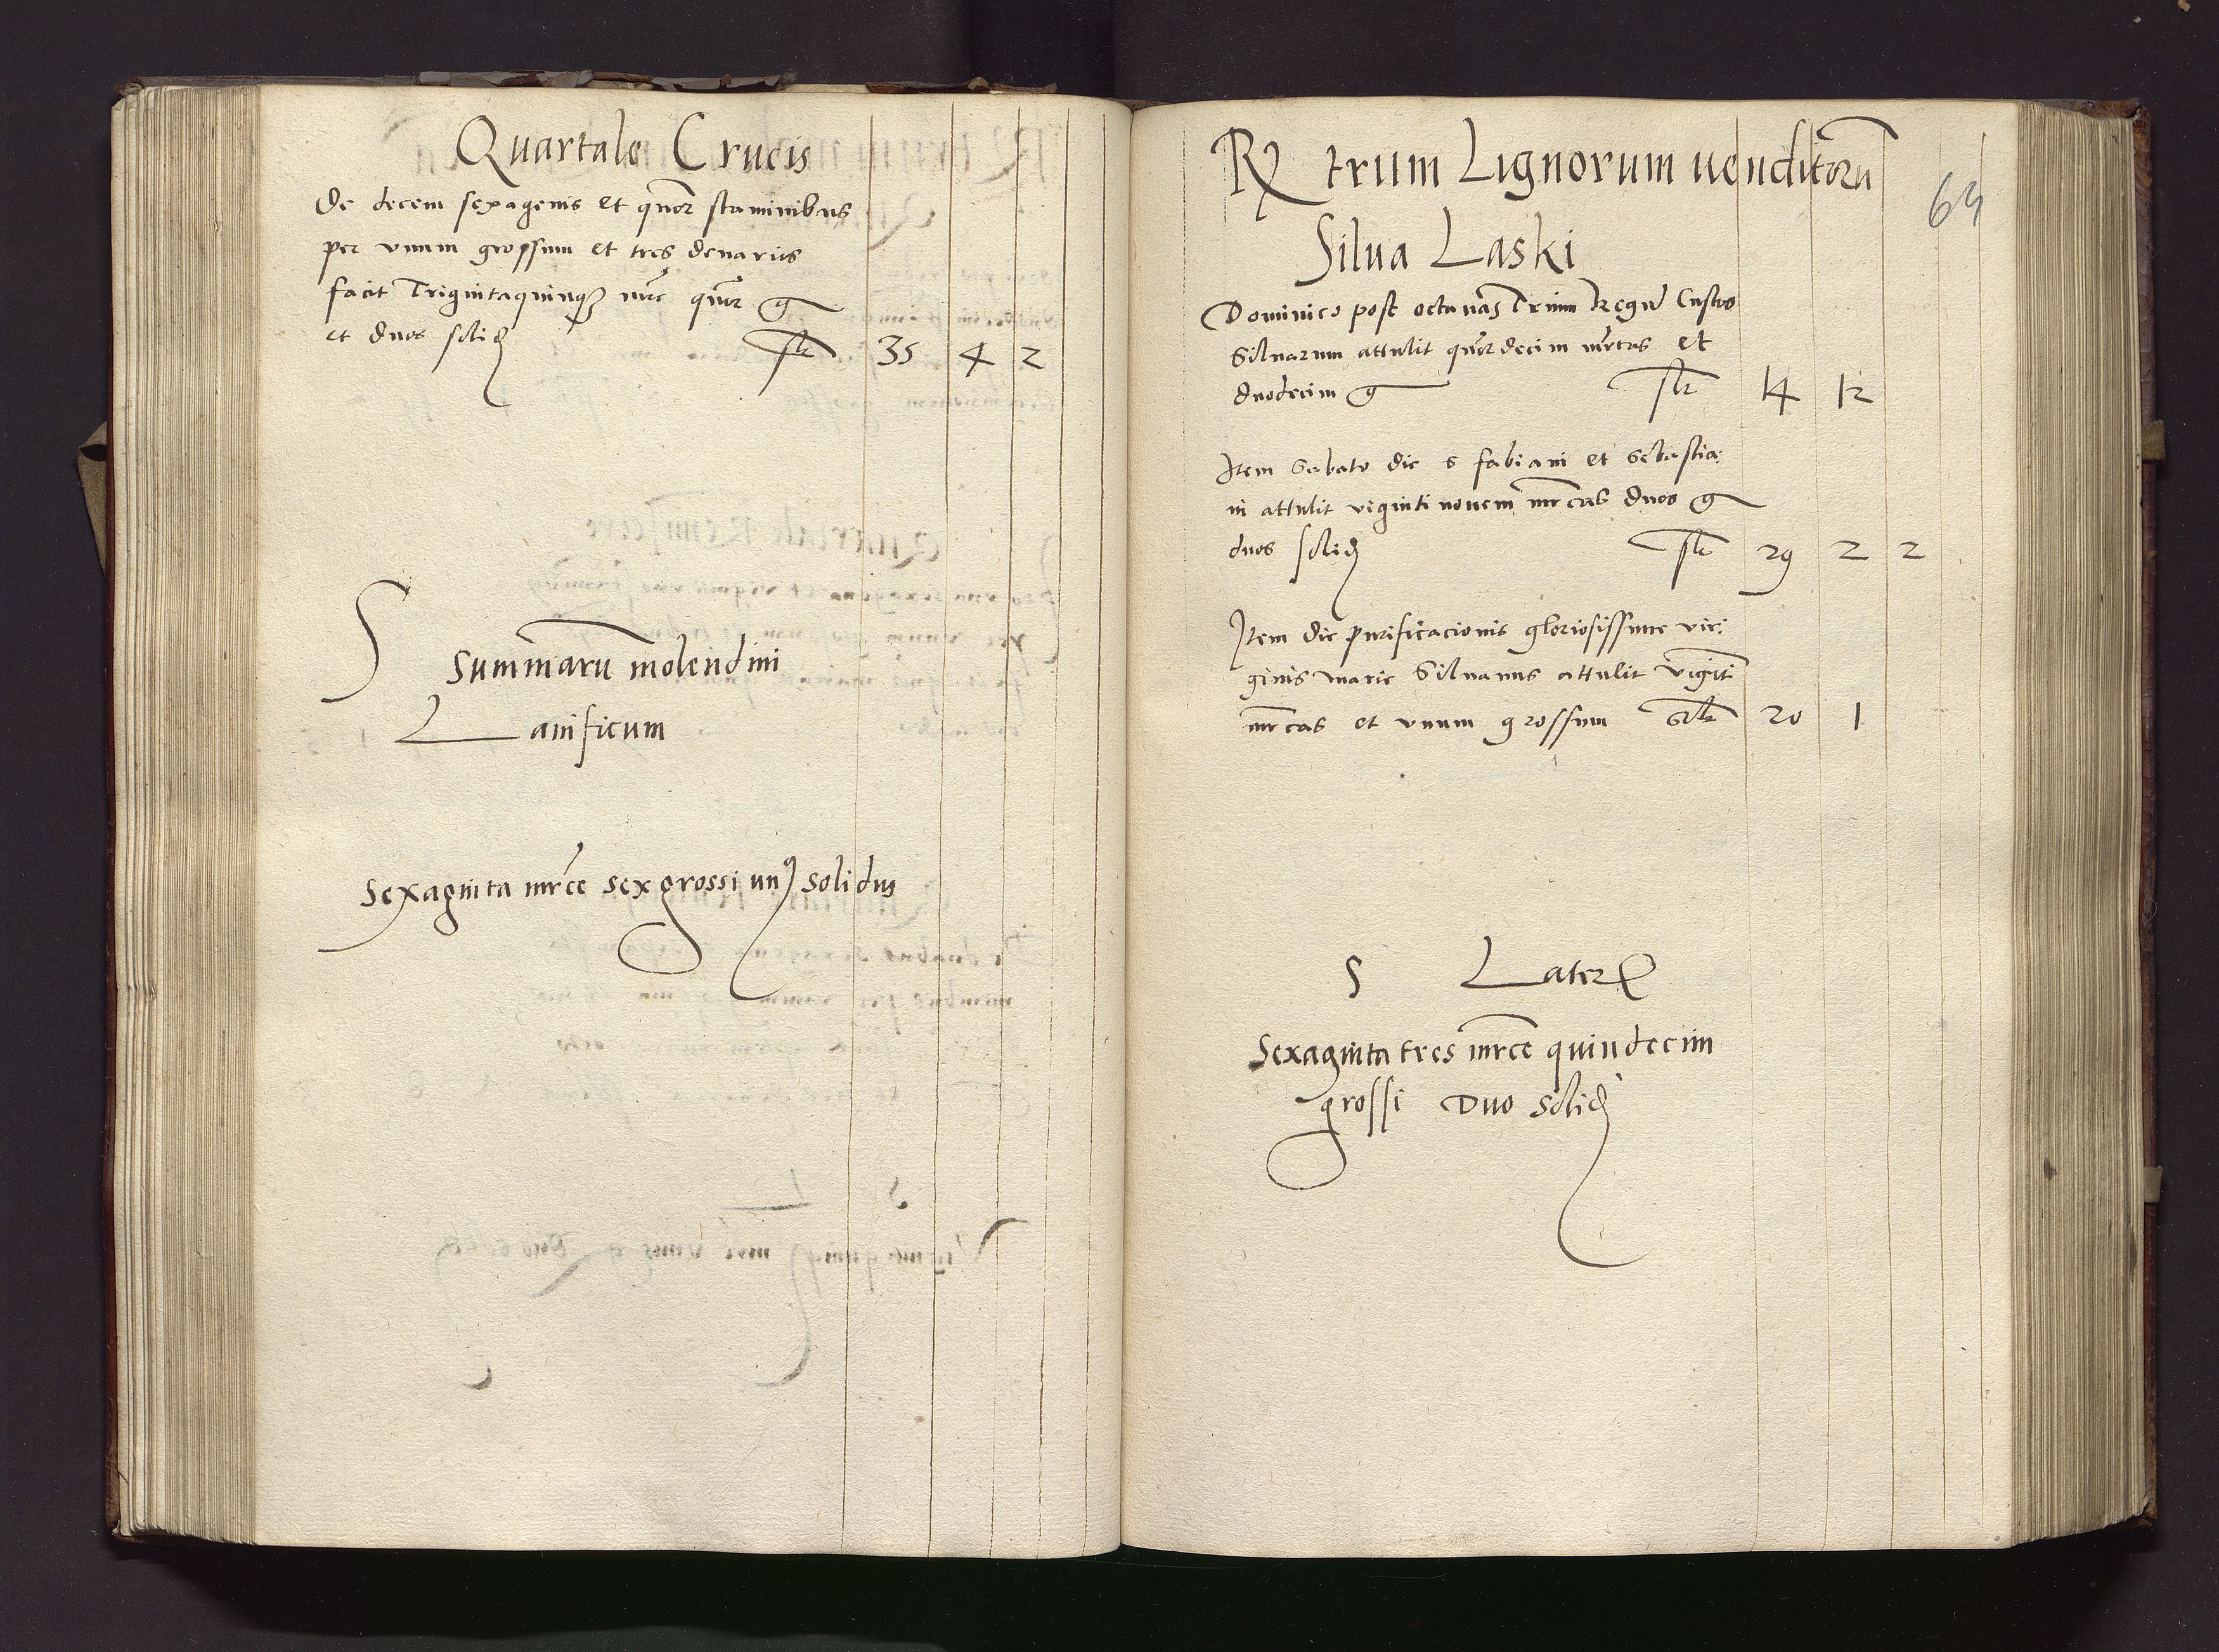 Quartale Crucis
De decem sexagenis et quor staminibus
per vnum grossum et tres denarios
facit Trigintaquinq mrc quor g
et duos solid 35 4 2
S
Summaru molendini
Lanificum
Sexaginta mrce sex grossi un9 solidus
Rx trum Lignorum venditoru
63
Silua Laski
Dominico post octauas Trium Regu Custos
Siluarum attulit quordecim mrcas et
duodecim g flr 14 12
Item Sabato die s fabiani et Sebastia:
ni attulit viginti nouem mrcas duos g
duos solid flr 29 2 2
Item die purificacionis gloriosissime vir:
ginis marie Siluanus attulit vigiti
mrcas et vnum grossum 20 1
S Later
Sexaginta tres mrce quindecim
grossi Duo solid